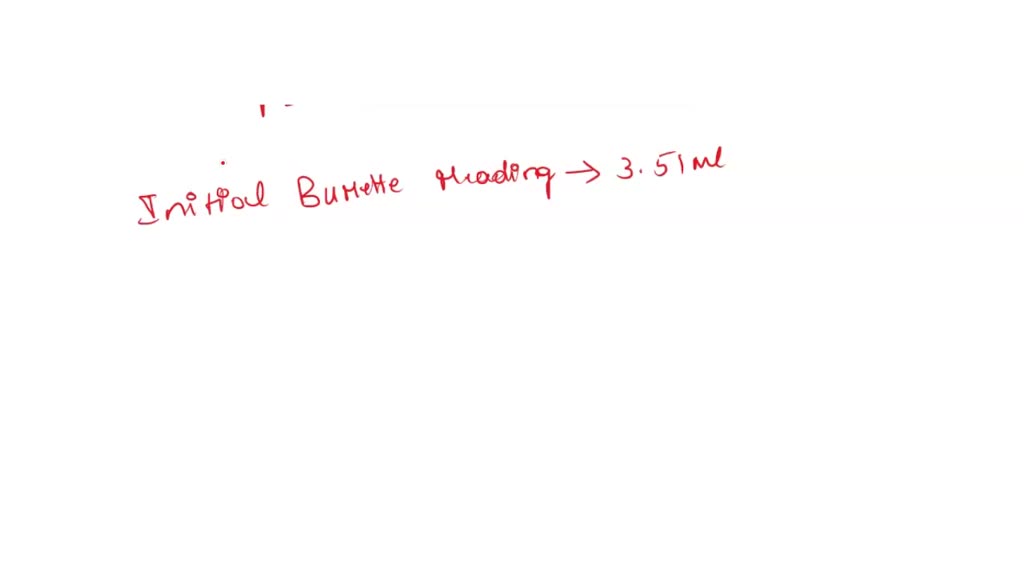 Initial Burette reading → 3.51 ml